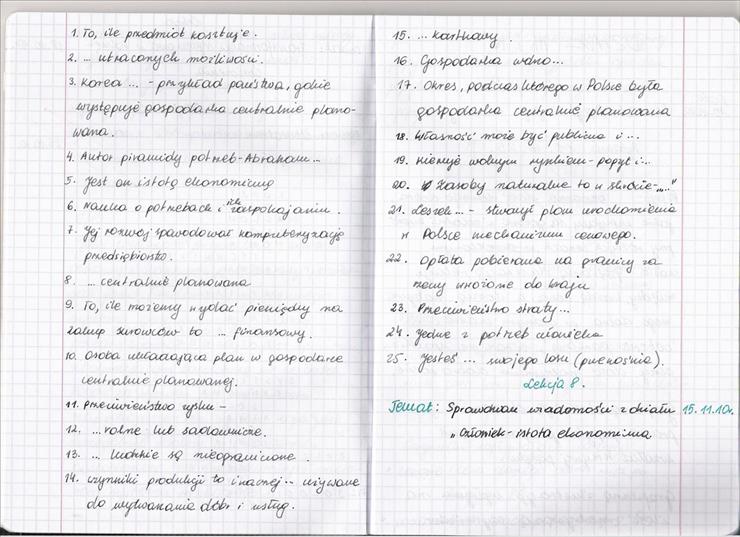 1. To, ile przedmiot kosztuje.
2. ... utraconych możliwości.
3. Korea ... - przykład państwa, gdzie
występuje gospodarka centralnie plano-
wana.
4. Autor piramidy potrzeb - Abraham...
5. Jest on istotą ekonomiczną
6. Nauka o potrzebach i ich zaspokajaniu.
7. Jej rozwój spowodował komputeryzację
przedsiębiorstw.
8. ... centralnie planowana
9. To, ile możemy wydać pieniędzy na
zakup surowców to ... finansowy.
10. Osoba układająca plan w gospodarce
centralnie planowanej.
11. Przeciwieństwo zysku -
12. ... rolne lub sadownicze.
13. ... ludzkie są nieograniczone.
14. Czynniki produkcji to inaczej ... używane
do wytwarzania dóbr i usług.
15. ... kartkowy.
16. Gospodarka wolno...
17. Okres, podczas którego w Polsce była
gospodarka centralnie planowana
18. Własność może być publiczna i ...
19. Kieruje wolnym rynkiem - popyt i ...
20. Zasoby naturalne to w skrócie - „..."
21. Leszek ... - stworzył plan urochomienia
w Polsce mechanizmu cenowego.
22. Opłata pobierana na granicy za
towary wwożone do kraju
23. Przeciwieństwo straty...
24. Jedna z potrzeb człowieka
25. Jesteś ... swojego losu (przenośnia).
Lekcja 8.
Temat: Sprawdzian wiadomości z działu 15.11.10r.
„Człowiek - istota ekonomiczna